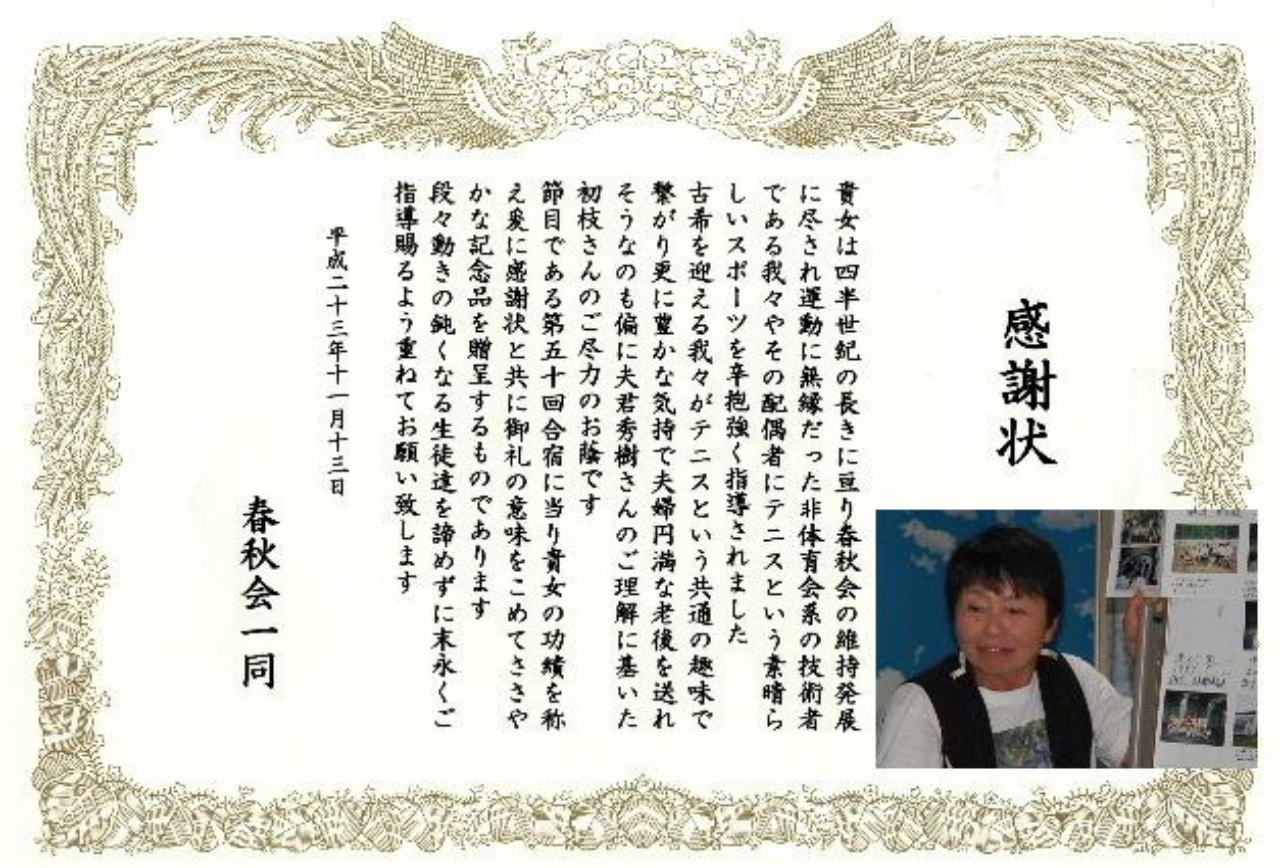 感謝状
貴女は四半世紀の長きに亘り春秋会の維持発展
に尽され運動に無縁だった非体育会系の技術者
である我々やその配偶者にテニスという素晴ら
しいスポーツを辛抱強く指導されました
古希を迎える我々がテニスという共通の趣味で
繋がり更に豊かな気持で夫婦円満な老後を送れ
そうなのも偏に夫君秀樹さんのご理解に基いた
初枝さんのご尽力のお蔭です
節目である第五十回合宿に当り貴女の功績を称
え爰に感謝状と共に御礼の意味をこめてささや
かな記念品を贈呈するものであります
段々動きの鈍くなる生徒達を諦めずに末永くご
指導賜るよう重ねてお願い致します
平成二十三年十一月十三日
春秋会一同